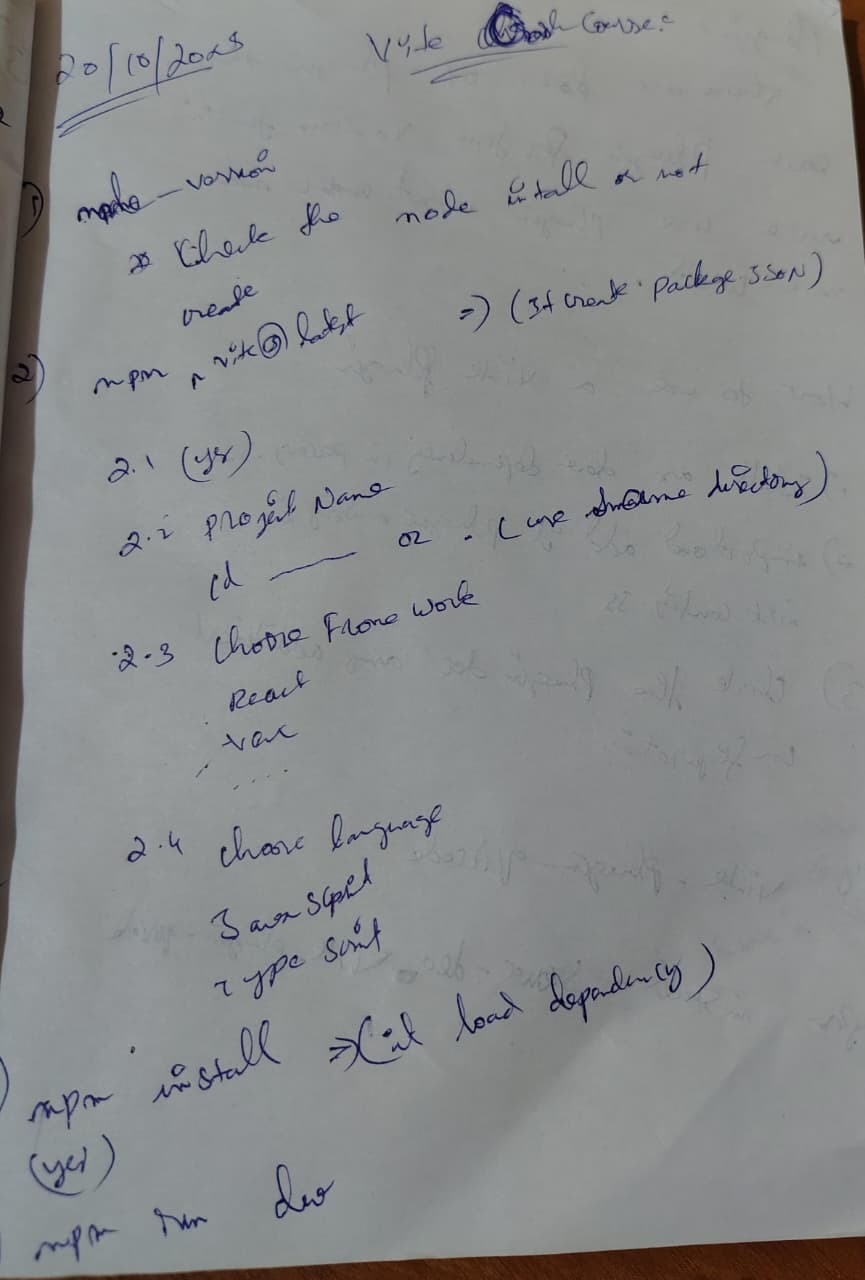 20/10/2023
Vite Crash Course:
1) node - version
* Check the node install or not
2) npm create vite@latest => (It create package JSON)
2.1 (yes)
2.2 Project Name
cd ___ or . (use same directory)
2.3 Choose Frame Work
React
Vue
....
2.4 choose language
Java Script
Type Script
npm install => (it load dependency)
(yes)
npm run dev